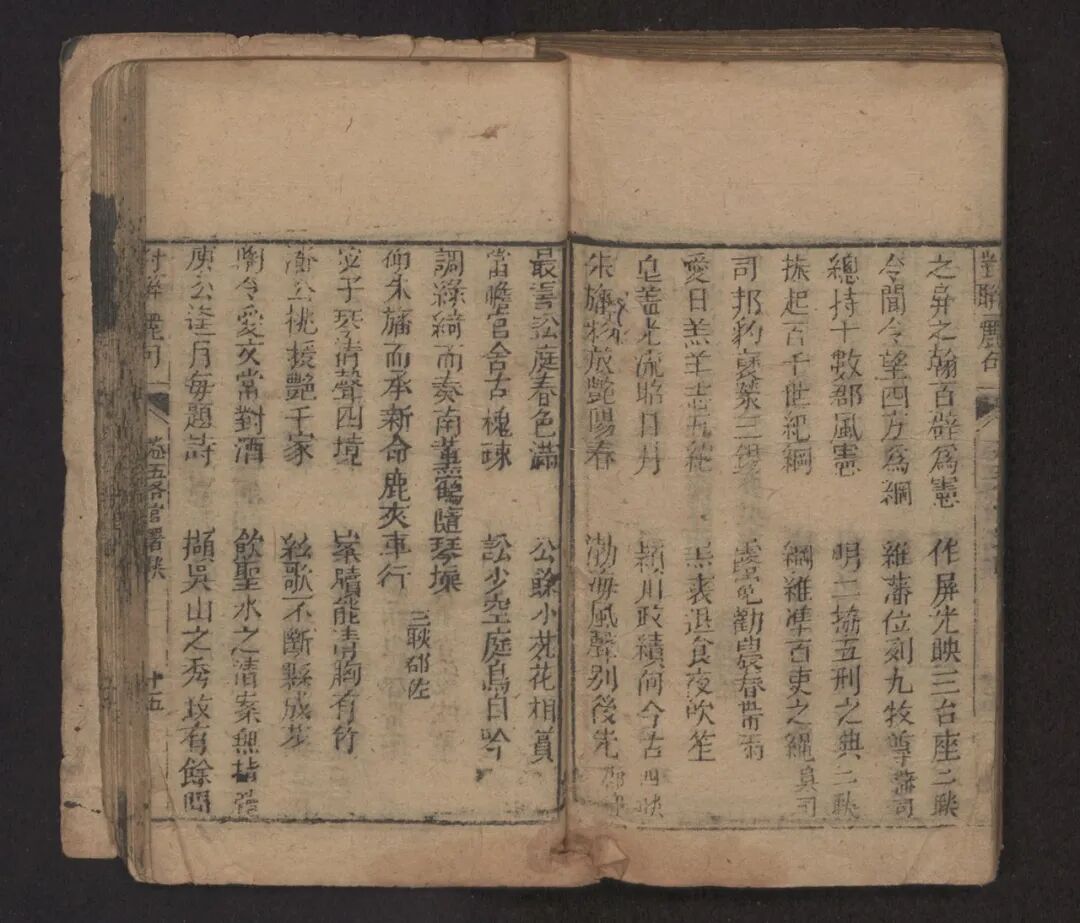 對聯麗句
之屏之翰百辟為憲 作屏光映三台座二聯
令聞令望四方為綱 維藩位列九牧尊藩司
總持十數郡風憲 明二協五刑之典二聯
振起百千世紀綱 綱維準百吏之繩臬司
司邦 三 勸農春帶雨
愛日羔羊 五 退食夜吹笙
皂蓋光流昭日丹 潁川政績何今古四聯
朱旛 艷陽春 渤海風聲别後先 郡
最喜訟庭春色滿 公餘小苑花相賞
當瞻官舍古槐疎 訟少空庭鳥自吟
調綠綺而奏南薰鶴隨琴操
仰朱旛而承新命鹿夾車行 三聯郡佐
宓子琴清聲四境 案牘能清胸有竹
潘公桃援艷千家 絃歌不斷縣成花
陶令愛 常對酒 飲聖水之清案無
庾公逢月每題詩 擷吳山之秀政有餘閒
對聯麗句 卷五各官署聯 十五